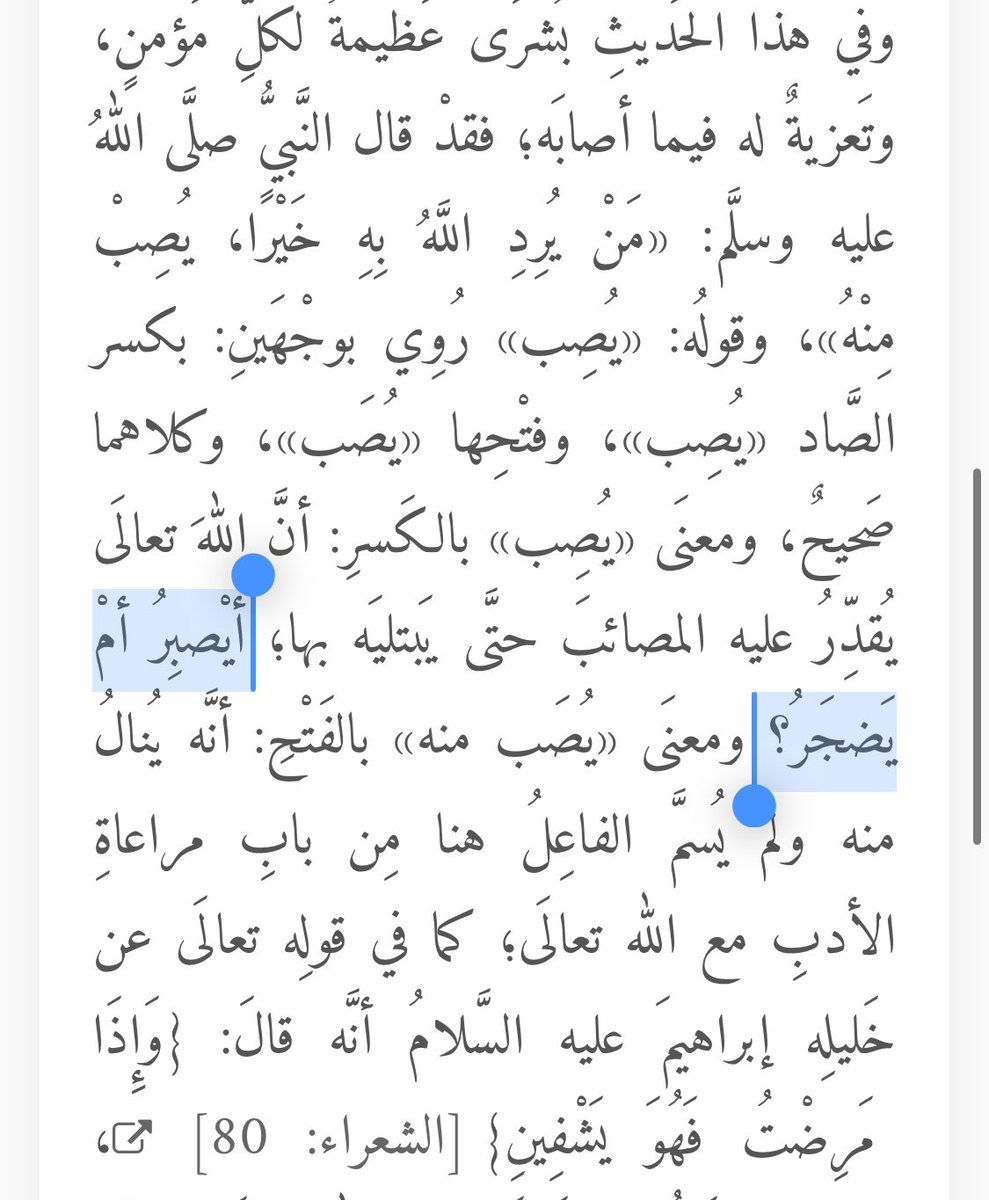 وفي هذا الحَديثِ بُشرَى عَظيمةٌ لكلِّ مُؤمنٍ،
وتَعزيةٌ له فيما أصابَه؛ فقدْ قال النَّبيُّ صلَّى اللهُ
عليه وسلَّم: «مَنْ يُرِدِ اللَّهُ بِهِ خَيْرًا، يُصِبْ
مِنْهُ»، وقولُه: «يُصِب» رُوِي بوجْهَينِ: بكسر
الصَّاد «يُصِب»، وفتْحِها «يُصَب»، وكلاهما
صَحيحٌ، ومعنَى «يُصِب» بالكَسرِ: أنَّ اللهَ تعالَى
يُقدِّرُ عليه المصائبَ حتَّى يَبتليَه بها؛ أيْصبِرُ أمْ
يَضجَرُ؟ ومعنَى «يُصَب منه» بالفَتْحِ: أنَّه يُنالُ
منه ولم يُسمَّ الفاعِلُ هنا مِن بابِ مراعاةِ
الأدبِ مع الله تعالَى؛ كما في قولِه تعالَى عن
خَليلِه إبراهيمَ عليه السَّلامُ أنَّه قالَ: {وَإِذَا
مَرِضْتُ فَهُوَ يَشْفِينِ} [الشعراء: 80] ،